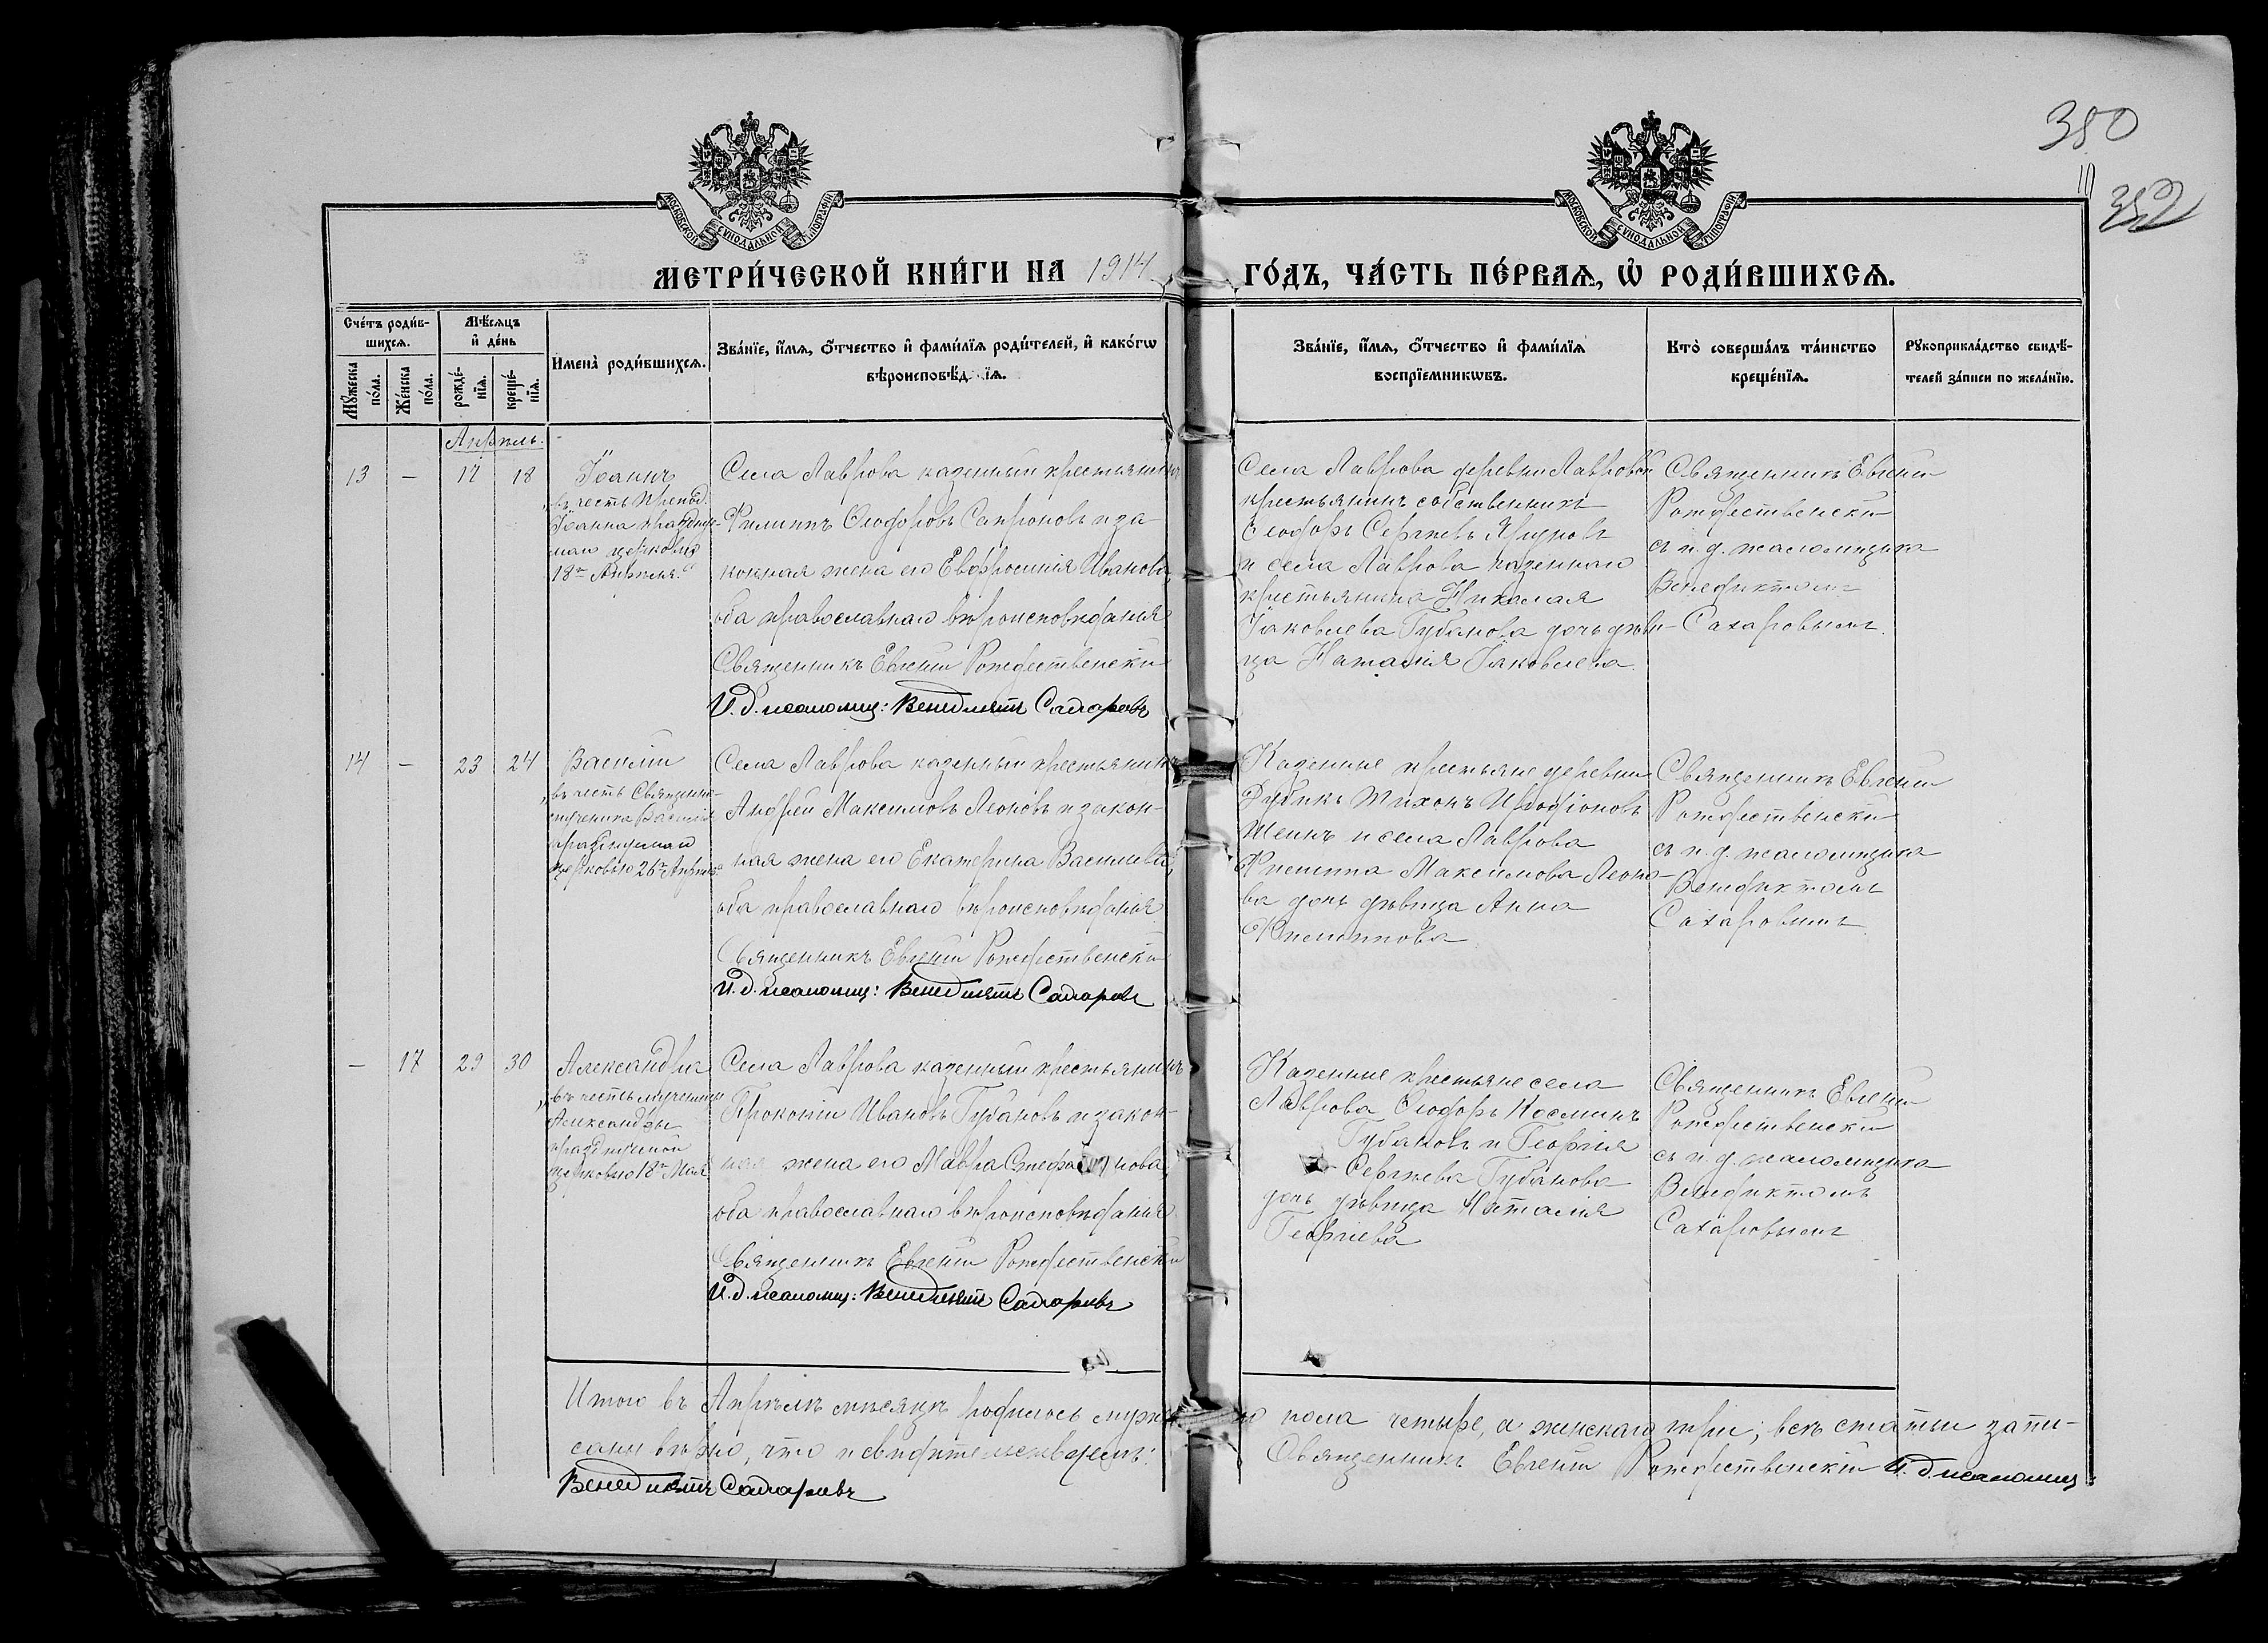 380
352
МОСКОВСКОЙ СѴНОДАЛЬНОЙ ТИПОГРАФІИ
МОСКОВСКОЙ СѴНОДАЛЬНОЙ ТИПОГРАФІИ
МЕТРИ́ЧЕСКОЙ КНИ́ГИ НА 1914 ГО́ДЪ, ЧА́СТЬ ПЕ́РВАѦ, Ѡ҆ РОДИ́ВШИХСѦ.
Сче́тъ роди́в-
шихсѧ.
Мꙋ́жеска
по́ла.
Же́нска
по́ла.
Мѣ́сѧцъ
и҆ де́нь
рожде́-
нїѧ.
креще́-
нїѧ.
И҆мена̀ роди́вшихсѧ.
Зва́нїе, и҆́мѧ, ѻ҆́тчество и҆ фами́лїѧ роди́телей, и҆ како́гѡ
вѣроисповѣ́д їѧ.
Зва́нїе, и҆́мѧ, ѻ҆́тчество и҆ фами́лїѧ
воспрїемникѡвъ.
Кто̀ соверша́лъ та́инство
креще́нїѧ.
Рꙋкоприкла́дство свидѣ́-
телей за́писи по жела́нїю.
Апрѣль.
13 — 17 18
Іоаннъ
„въ честь Препод.
Іоанна празднуе-
маго церковію
18го Апрѣля."
Села Лаврова казенный крестьянинъ
Филиппъ Ѳеодоровъ Сапроновъ и за-
конная жена его Евфросинія Иванова,
оба православнаго вѣроисповѣданія
Священникъ Евгеній Рождественскій
И. д. псаломщ: Венедиктъ Сахаровъ
Села Лаврова деревни Лавровой
крестьянинъ собственникъ
Ѳеодоръ Сергѣевъ
и села Лаврова казеннаго
крестьянина Николая
Іаковлева Губанова дочь дѣви-
ца Наталія Іаковлева.
Священникъ Евгеній
Рождественскій
съ и. д. псаломщика
Венедиктомъ
Сахаровымъ.
14 — 23 24
Василій
„въ честь Священно-
мученика Василія
празднуемаго
церковію 26го Апрѣля"
Села Лаврова казенный крестьянинъ
Андрей Максимовъ Леоновъ и закон-
ная жена его Екатерина Васильева,
оба православнаго вѣроисповѣданія
Священникъ Евгеній Рождественскій
И. д. псаломщ: Венедиктъ Сахаровъ
Казенные крестьяне деревни
Тихонъ
и села Лаврова
Филиппа Максимова Леоно-
ва дочь дѣвица Анна
Филиппова
Священникъ Евгеній
Рождественскій
съ и. д. псаломщика
Венедиктомъ
Сахаровымъ
— 17 29 30
Александра
„въ честь мученицы
Александры
празднуемой
церковію 18го Мая"
Села Лаврова казенный крестьянинъ
Прокопій Ивановъ Губановъ и закон-
ная жена его Мавра Стефанова,
оба православнаго вѣроисповѣданія
Священникъ Евгеній Рождественскій
И. д. псаломщ: Венедиктъ Сахаровъ
Казенные крестьяне села
Лаврова Ѳеодоръ Косминъ
Губановъ и Георгія
Сергѣева Губанова
дочь дѣвица Наталія
Георгіева
Священникъ Евгеній
Рождественскій
съ и. д. псаломщика
Венедиктомъ
Сахаровымъ
Итого въ Апрѣлѣ мѣсяцѣ родилось мужскаго пола четыре, а женскаго три; всѣ статьи запи-
саны вѣрно, что и свидѣтельствуемъ: Священникъ Евгеній Рождественскій И. д. псаломщ:
Венедиктъ Сахаровъ